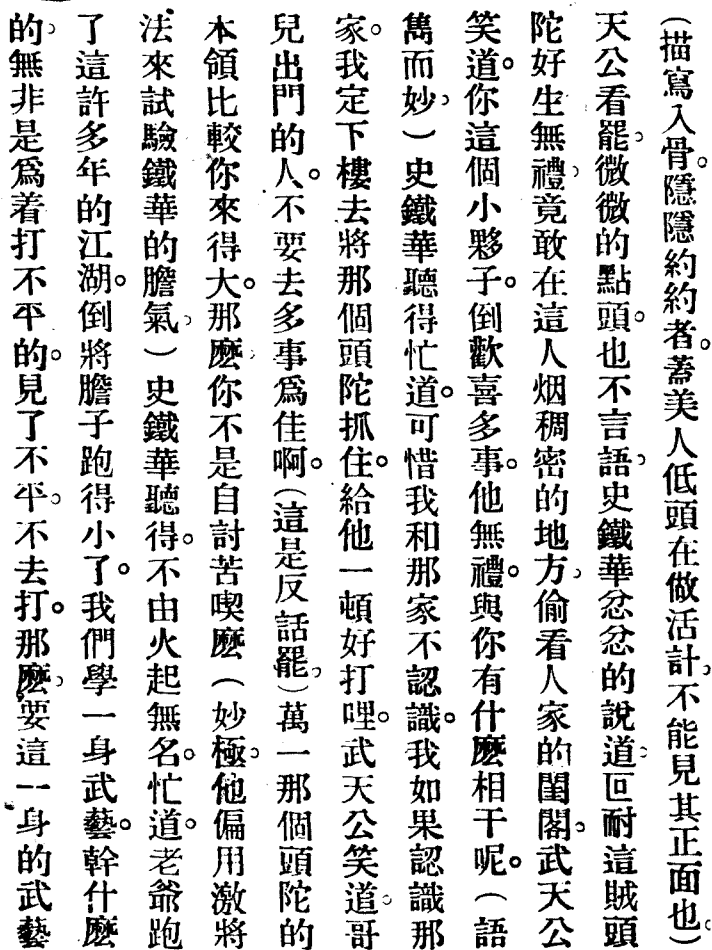 (描寫入骨。隱隱約約者。蓋美人低頭在做活計。不能見其正面也。)
天公看罷。微微的點頭。也不言語。史鐵華忿忿的說道。叵耐這賊頭
陀好生無禮。竟敢在這人烟稠密的地方。偷看人家的閨閣。武天公
笑道。你這個小夥子。倒歡喜多事。他無禮。與你有什麽相干呢。(語
雋而妙。)史鐵華聽得忙道。可惜我和那家不認識。我如果認識那
家。我定下樓去將那個頭陀抓住。給他一頓好打哩。武天公笑道。哥
兒出門的人。不要去多事爲佳啊。(這是反話罷。)萬一那個頭陀的
本領比較你來得大。那麽你不是自討苦喫麽(妙極。他偏用激將
法來試驗鐵華的膽氣。)史鐵華聽得。不由火起無名。忙道。老爺跑
了這許多年的江湖。倒將膽子跑得小了。我們學一身武藝。幹什麽
的。無非是爲着打不平的。見了不平。不去打。那麽。要這一身的武藝